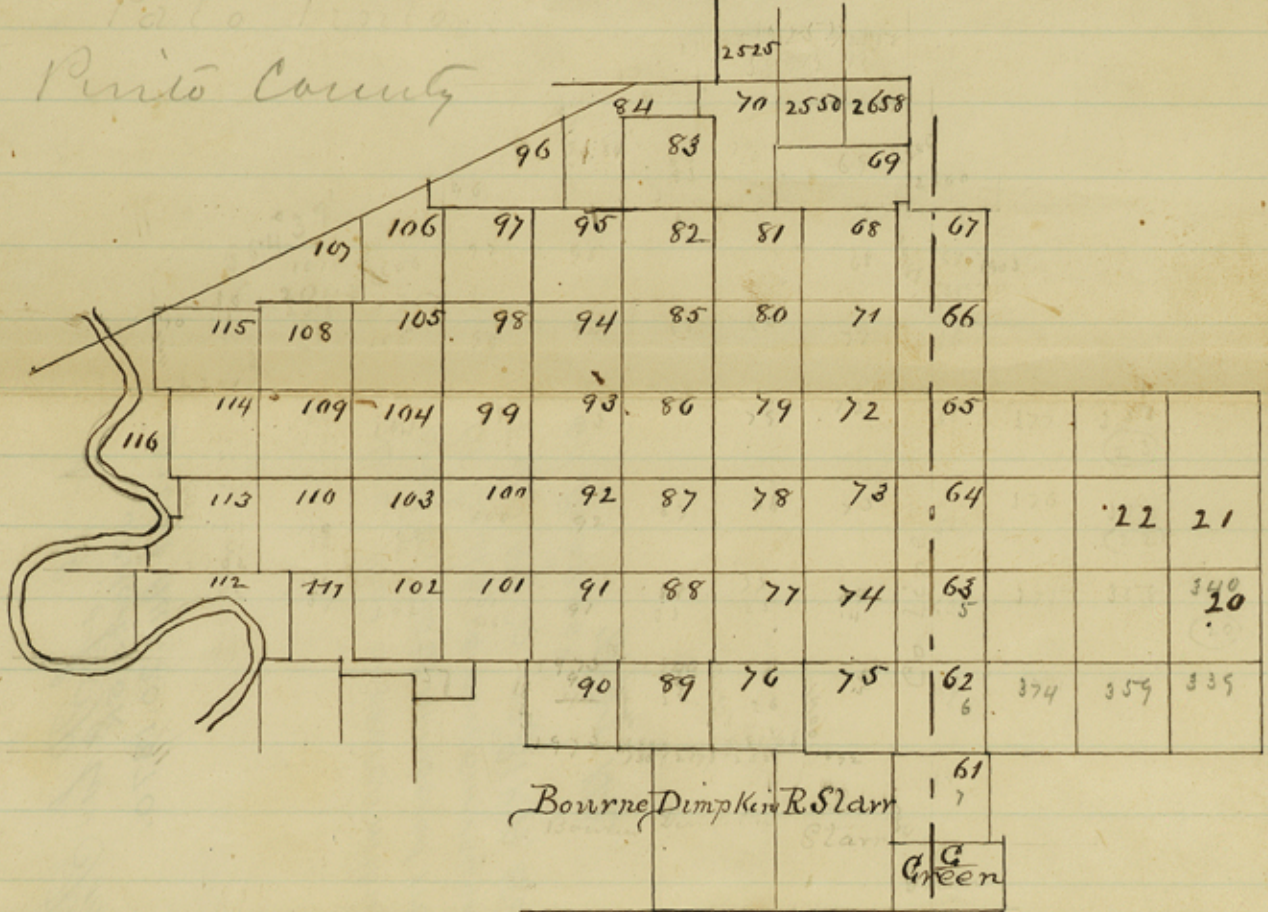 Palo Pinto
Pinto County
2525
84 70 2550 2658
96 83 69
107 106 97 95 82 81 68 67
115 108 105 98 94 85 80 71 66
114 109 104 99 93 86 79 72 65
116
113 110 103 100 92 87 78 73 64 22 21
112 111 102 101 91 88 77 74 63 340
5 20
90 89 76 75 62 374 359 339
6
61
7
Bourne Dimpkin R Starr
G
Green